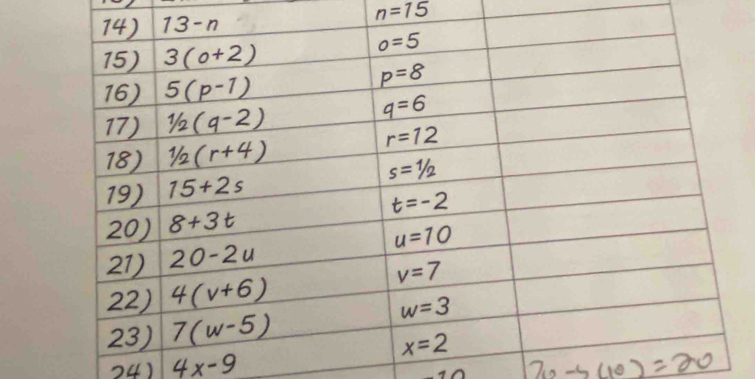 14) 13-n n=15
15) 3(o+2) o=5
16) 5(p-1) p=8
17) ½(q-2) q=6
18) ½(r+4) r=12
19) 15+2s s=½
20) 8+3t t=-2
21) 20-2u u=10
22) 4(v+6) v=7
23) 7(w-5) w=3
24) 4x-9 x=2
(10)=20